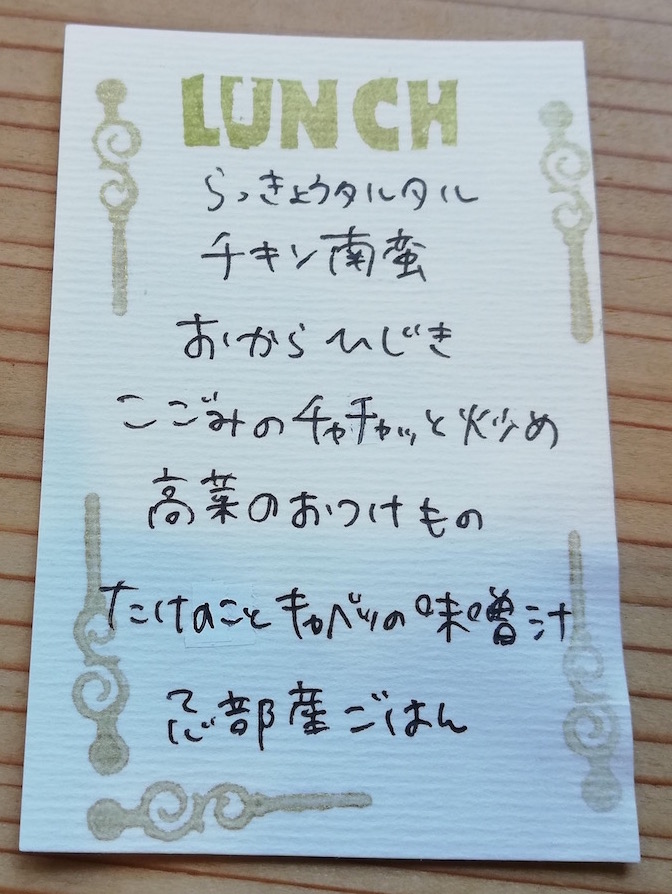 LUNCH
らっきょうタルタル
チキン南蛮
おからひじき
こごみのチャチャッと炒め
高菜のおつけもの
たけのことキャベツの味噌汁
忍部産ごはん